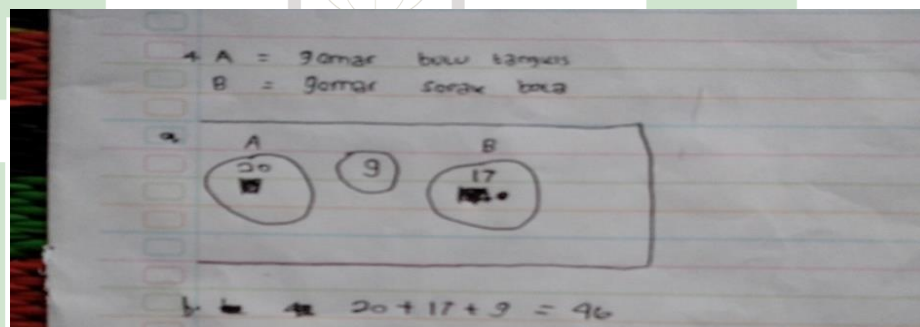 4 A = gemar bulu tangkis
B = gemar sepak bola
a
A B
20 9 17
b. 20 + 17 + 9 = 46